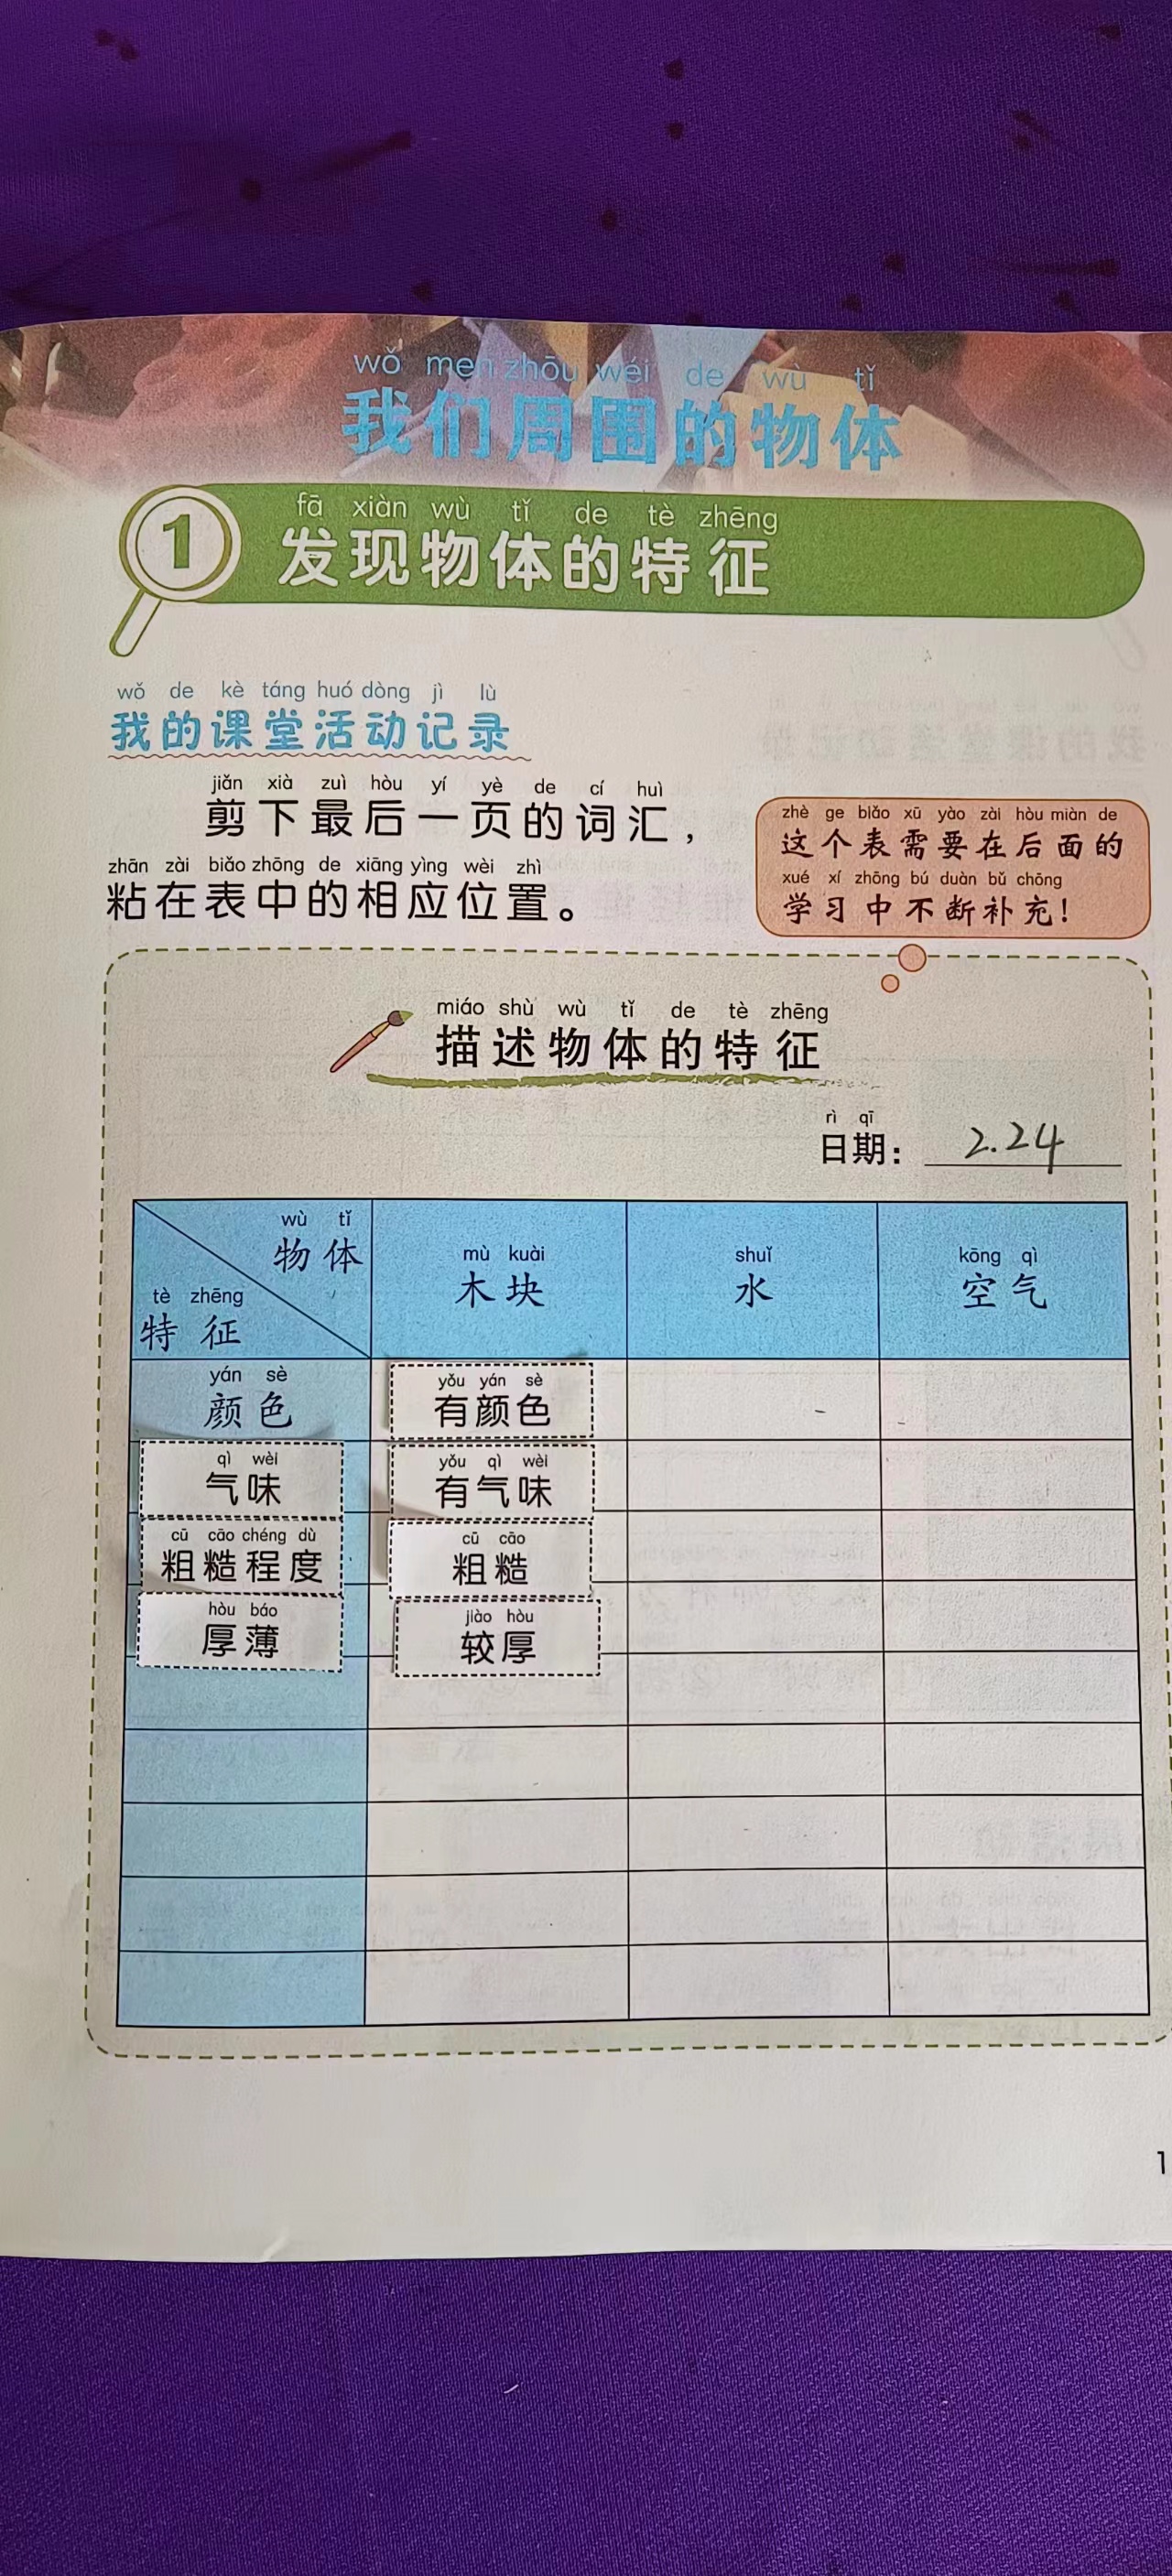 wǒ men zhōu wéi de wù tǐ
我们周围的物体
fā xiàn wù tǐ de tè zhēng
1 发现物体的特征
wǒ de kè táng huó dòng jì lù
我的课堂活动记录
jiǎn xià zuì hòu yí yè de cí huì
剪下最后一页的词汇，
zhān zài biǎo zhōng de xiāng yìng wèi zhì
粘在表中的相应位置。
zhè ge biǎo xū yào zài hòu miàn de
这个表需要在后面的
xué xí zhōng bú duàn bǔ chōng
学习中不断补充！
miáo shù wù tǐ de tè zhēng
描述物体的特征
rì qī
日期： 2.24
wù tǐ
物体
tè zhēng
特征
mù kuài
木块
shuǐ
水
kōng qì
空气
yán sè
颜色
yǒu yán sè
有颜色
qì wèi
气味
yǒu qì wèi
有气味
cū cāo chéng dù
粗糙程度
cū cāo
粗糙
hòu báo
厚薄
jiào hòu
较厚
1